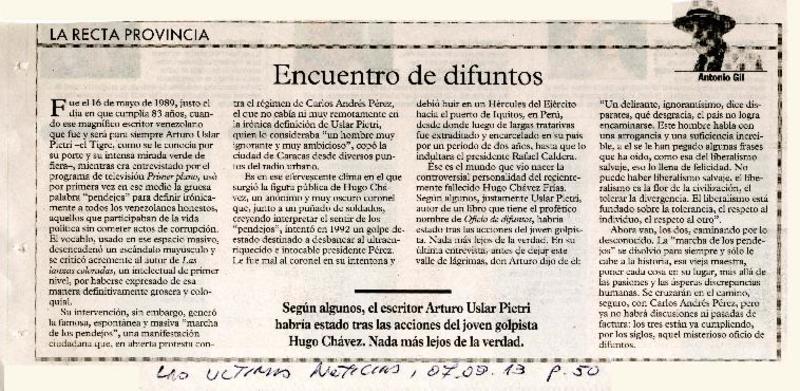 LA RECTA PROVINCIA
Antonio Gil
Encuentro de difuntos
Fue el 16 de mayo de 1989, justo el
día en que cumplía 83 años, cuando
ese magnífico escritor venezolano
que fue y será para siempre Arturo Uslar
Pietri –el Tigre, como se le conocía por
su porte y su intensa mirada verde de
fiera–, mientras era entrevistado por el
programa de televisión Primer plano, usó
por primera vez en ese medio la gruesa
palabra "pendejos" para definir irónica-
mente a todos los venezolanos honestos,
aquellos que participaban de la vida
política sin cometer actos de corrupción.
El vocablo, usado en ese espacio masivo,
desencadenó un escándalo mayúsculo y
se criticó acremente al autor de Las
lanzas coloradas, un intelectual de primer
nivel, por haberse expresado de esa
manera definitivamente grosera y colo-
quial.
Su intervención, sin embargo, generó
la famosa, espontánea y masiva "marcha
de los pendejos", una manifestación
ciudadana que, en abierta protesta con-
tra el régimen de Carlos Andrés Pérez,
el que no cabía ni muy remotamente en
la irónica definición de Uslar Pietri,
quien lo consideraba "un hombre muy
ignorante y muy ambicioso", copó la
ciudad de Caracas desde diversos pun-
tos del radio urbano.
Es en ese efervescente clima en el que
surgió la figura pública de Hugo Chá-
vez, un anónimo y muy oscuro coronel
que, junto a un puñado de soldados,
creyendo interpretar el sentir de los
"pendejos", intentó en 1992 un golpe de
estado destinado a desbancar al ultraen-
riquecido e intocable presidente Pérez.
Le fue mal al coronel en su intentona y
debió huir en un Hércules del Ejército
hacia el puerto de Iquitos, en Perú,
desde donde luego de largas tratativas
fue extraditado y encarcelado en su país
por un período de dos años, hasta que lo
indultara el presidente Rafael Caldera.
Ese es el mundo que vio nacer la
controversial personalidad del reciente-
mente fallecido Hugo Chávez Frías.
Según algunos, justamente Uslar Pietri,
autor de un libro que tiene el profético
nombre de Oficio de difuntos, habría
estado tras las acciones del joven golpis-
ta. Nada más lejos de la verdad. En su
última entrevista, antes de dejar este
valle de lágrimas, don Arturo dijo de él:
"Un delirante, ignorantísimo, dice dis-
parates, qué desgracia, el país no logra
encaminarse. Este hombre habla con
una arrogancia y una suficiencia increí-
ble, a él se le han pegado algunas frases
que ha oído, como esa del liberalismo
salvaje, eso lo llena de felicidad. No
puede haber liberalismo salvaje, el libe-
ralismo es la flor de la civilización, el
tolerar la divergencia. El liberalismo está
fundado sobre la tolerancia, el respeto al
individuo, el respeto al otro".
Ahora van, los dos, caminando por lo
desconocido. La "marcha de los pende-
jos" se disolvió para siempre y sólo le
cabe a la historia, esa vieja maestra,
poner cada cosa en su lugar, más allá de
las pasiones y las ásperas discrepancias
humanas. Se cruzarán en el camino,
seguro, con Carlos Andrés Pérez, pero
ya no habrá discusiones ni pasadas de
factura: los tres están ya cumpliendo,
por los siglos, aquel misterioso oficio de
difuntos.
Según algunos, el escritor Arturo Uslar Pietri
habría estado tras las acciones del joven golpista
Hugo Chávez. Nada más lejos de la verdad.
Las Ultimas Noticias, 07.03.13 p.50